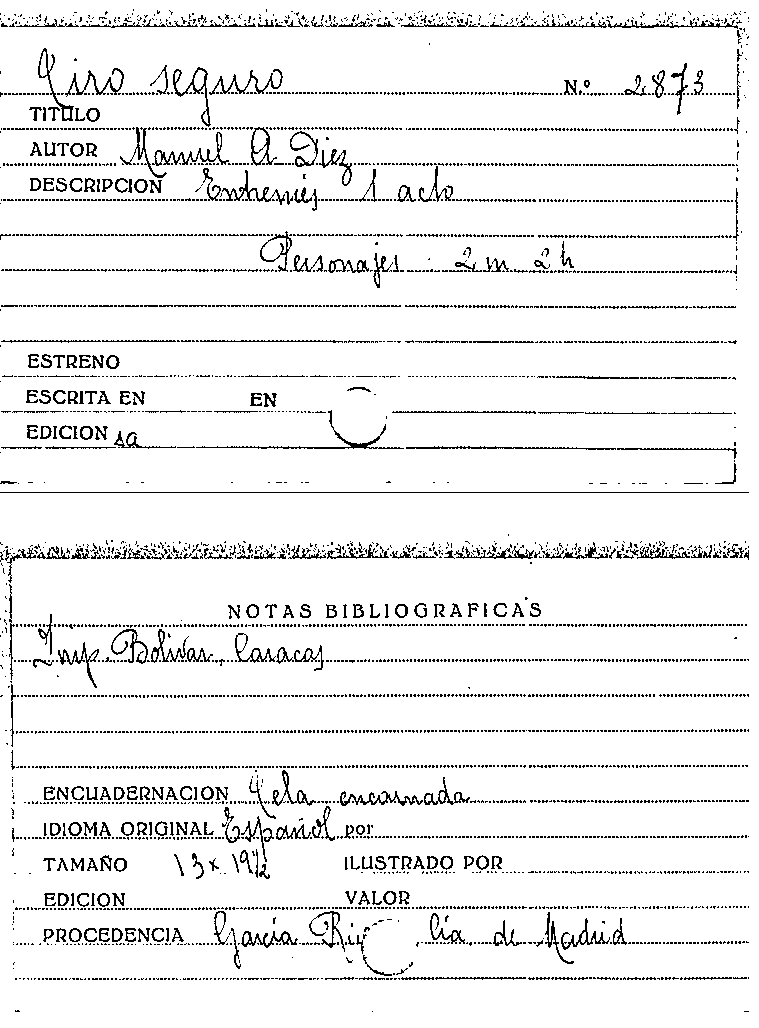 Tiro seguro N.º 2873
TITULO
AUTOR Manuel A. Diez
DESCRIPCION Entremés 1 acto
Personajes 2 m 2 h
ESTRENO
ESCRITA EN EN
EDICION sa
NOTAS BIBLIOGRAFICAS
Imp. Bolívar, Caracas
ENCUADERNACION Tela encarnada
IDIOMA ORIGINAL Español por
TAMAÑO 13 x 19½ ILUSTRADO POR
EDICION VALOR
PROCEDENCIA García Ri Cía. de Madrid